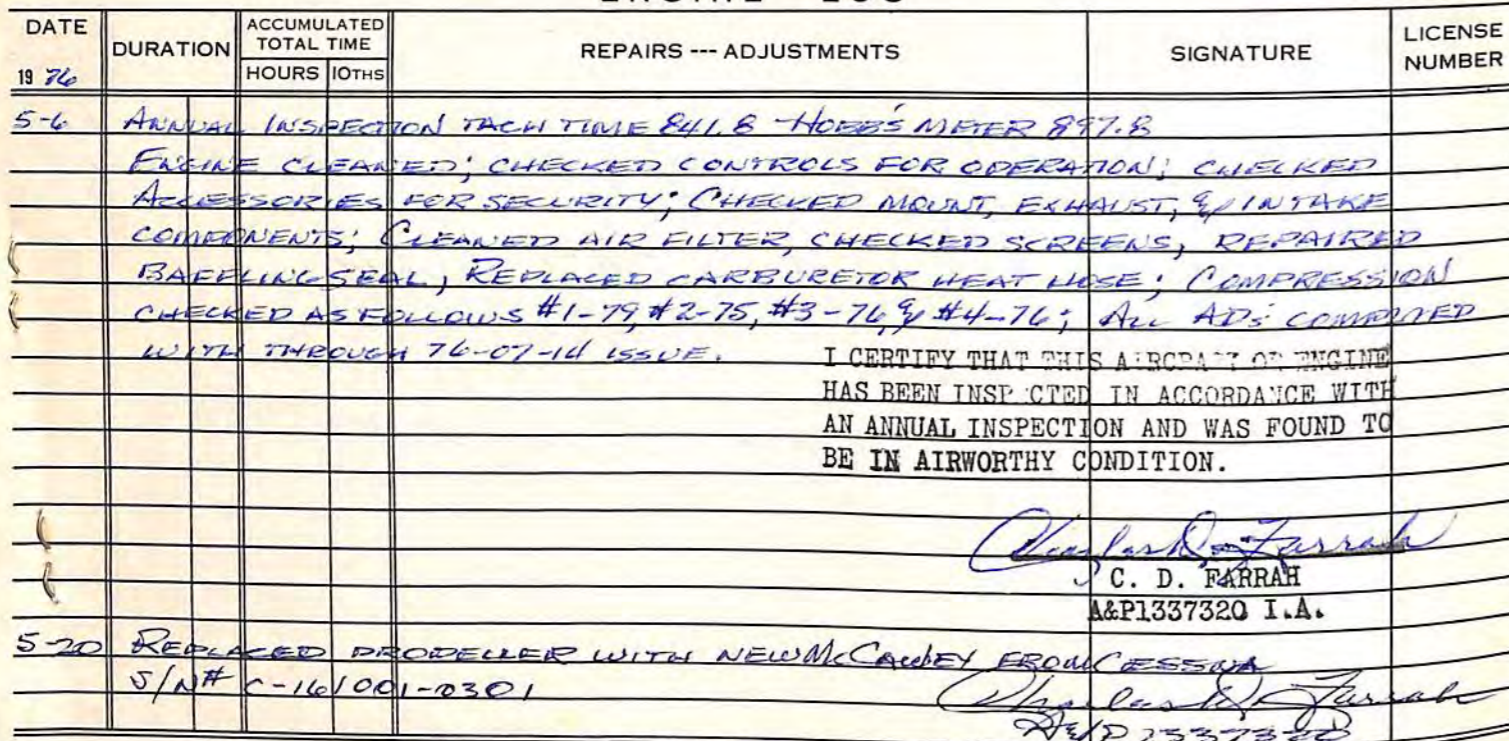 DATE
DURATION
ACCUMULATED
TOTAL TIME
HOURS 10THS
REPAIRS --- ADJUSTMENTS
SIGNATURE
LICENSE
NUMBER
19 76
5-6 ANNUAL INSPECTION TACH TIME 841.8 - HOBB'S METER 897.8
ENGINE CLEANED; CHECKED CONTROLS FOR OPERATION; CHECKED
ACCESSORIES FOR SECURITY; CHECKED MOUNT, EXHAUST, & INTAKE
COMPONENTS; CLEANED AIR FILTER, CHECKED SCREENS, REPAIRED
BAFFLING SEAL, REPLACED CARBURETOR HEAT HOSE; COMPRESSION
CHECKED AS FOLLOWS #1-79, #2-75, #3-76 & #4-76; ALL ADs COMPLIED
WITH THROUGH 76-07-14 ISSUE.
I CERTIFY THAT THIS AIRCRAFT OR ENGINE
HAS BEEN INSP CTED IN ACCORDANCE WITH
AN ANNUAL INSPECTION AND WAS FOUND TO
BE IN AIRWORTHY CONDITION.
Charles D. Farrah
C. D. FARRAH
A&P1337320 I.A.
5-20 REPLACED PROPELLER WITH NEW McCAULEY FROM CESSNA
S/N# C-161001-0301
Charles D. Farrah
A&P 1337320